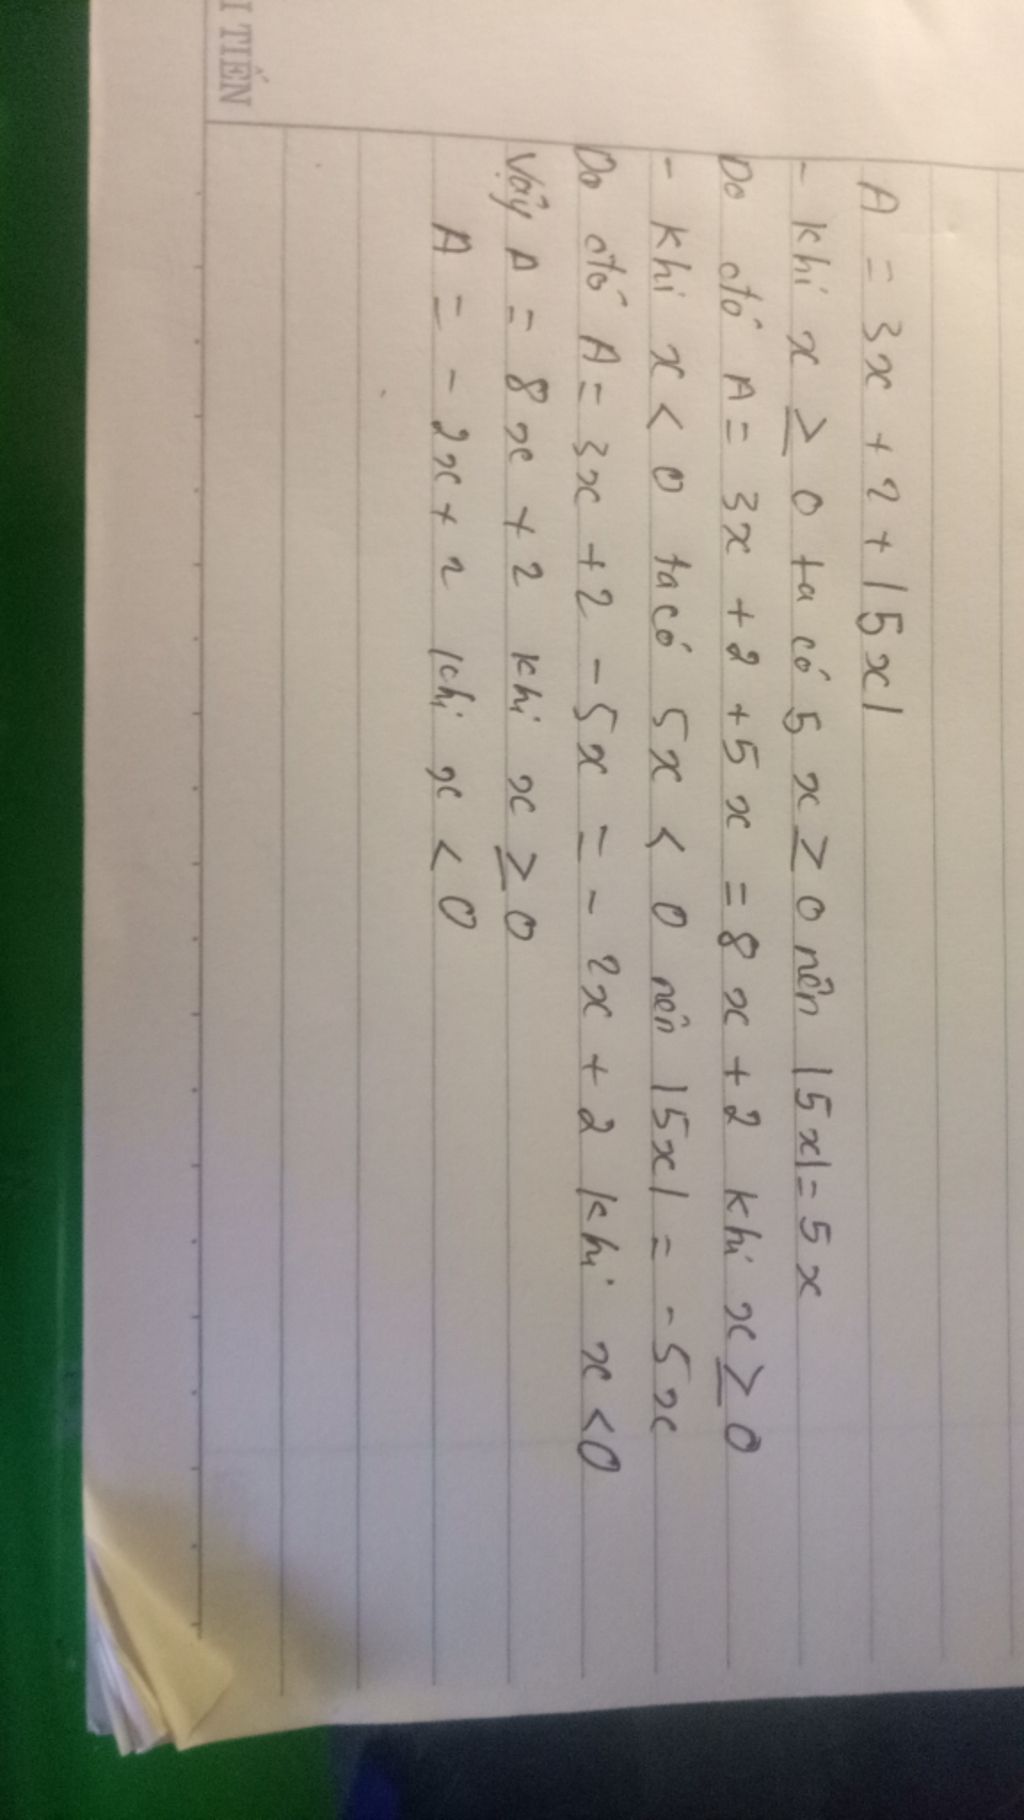 I TIẾN
A = 3x + 2 + |5x|
- khi x ≥ 0 ta có 5x ≥ 0 nên |5x| = 5x
Do đó A = 3x + 2 + 5x = 8x + 2 khi x ≥ 0
- Khi x < 0 ta có 5x < 0 nên |5x| = -5x
Do đó A = 3x + 2 - 5x = - 2x + 2 khi x < 0
Vậy A = 8x + 2 khi x ≥ 0
A = - 2x + 2 khi x < 0